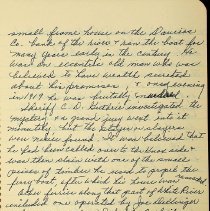 small frame house on the Douglas
Co. bank of the river & ran the boat for
many years early in the century. He
was an eccentric old man who was
believed to have wealth secreted
about his premises, & one evening
in 1909 he was brutally murdered
Sheriff C. D. Guthrie investigated the
mystery, a grand jury went into it
minutely but the slayer or slayers
were never found. It was believed that
he had been called over to the Ozark side &
was then slain with one of the small
pieces of timber he used to propel the
ferry boat, after which he
Other ferries along that part of White River
included one operated by Joe Dillinger